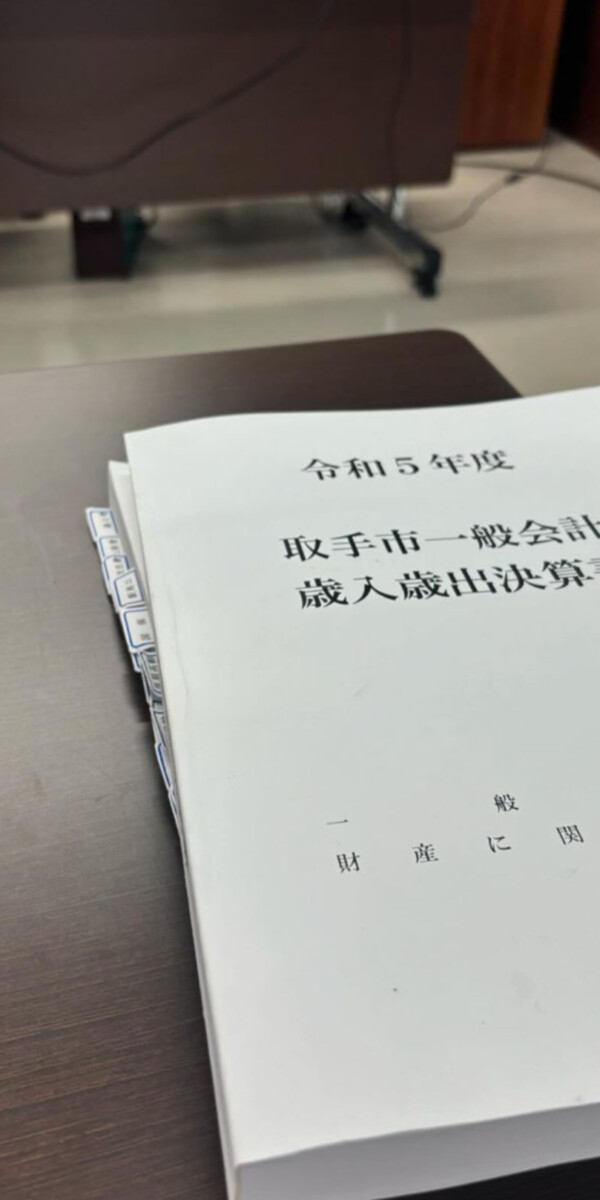 令和5年度
取手市一般会計
歳入歳出決算
一般
財産に関